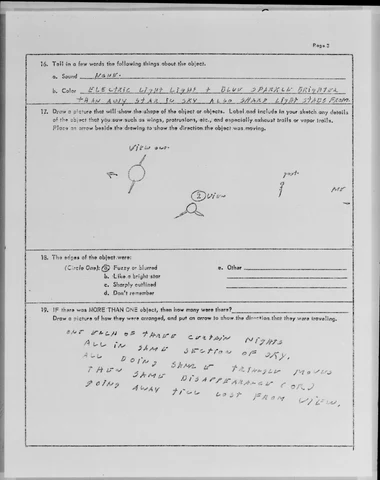 Page 2
16. Tell in a few words the following things about the object.
a. Sound NONE.
b. Color ELECTRIC LIGHT LIGHT + BLUE SPARKLE BRIGHTER
THAN ANY STAR IN SKY. ALSO SHARP LIGHT FROM.
17. Draw a picture that will show the shape of the object or objects. Label and include in your sketch any details
of the object that you saw such as wings, protrusions, etc., and especially exhaust trails or vapor trails.
Place an arrow beside the drawing to show the direction the object was moving.
VIEW ONE.
② VIEW
ME
18. The edges of the object were:
(Circle One): a. Fuzzy or blurred
b. Like a bright star
c. Sharply outlined
d. Don't remember
e. Other
19. IF there was MORE THAN ONE object, then how many were there?
Draw a picture of how they were arranged, and put an arrow to show the direction that they were traveling.
ONE EACH OF THREE CERTAIN NIGHTS
ALL IN SAME SECTION OF SKY.
ALL DOING SAME THINGS MOVED
THEN SAME DISAPPEARANCE (OR)
GOING AWAY TILL LOST FROM VIEW.